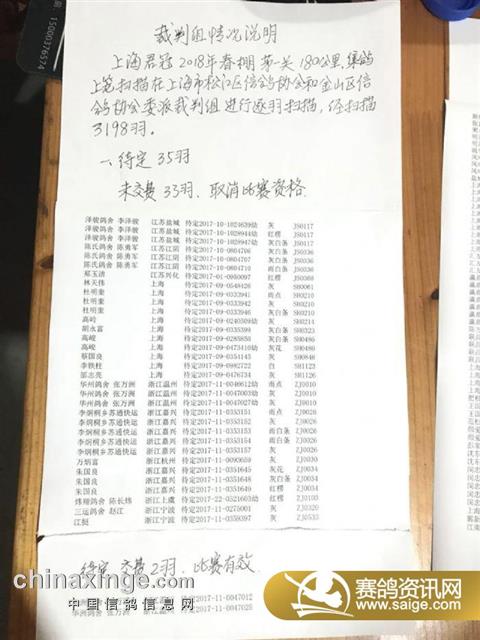 15000376574
裁判组情况说明
上海君冠2018年春棚第一关180公里,集鸽
上笼扫描在上海市松江区信鸽协会和金山区信
鸽协会委派裁判组进行逐羽扫描,经扫描
3198羽。
一、待定35羽
未交费33羽、取消比赛资格.
泽骏鸽舍 李泽骏 江苏盐城 待定2017-10-1024639幼 灰 JS0117
泽骏鸽舍 李泽骏 江苏盐城 待定2017-10-1028944幼 红楞 JS0117
泽骏鸽舍 李泽骏 江苏盐城 待定2017-10-1028947幼 灰白条 JS0117
陈氏鸽舍 陈勇军 江苏江阴 待定2017-10-0604706 灰白条 JS0336
陈氏鸽舍 陈勇军 江苏江阴 待定2017-10-0604707 灰白条 JS0336
陈氏鸽舍 陈勇军 江苏江阴 待定2017-10-0604710 雨白条 JS0336
郑玉清 江苏兴化 待定2017-01-0950097 红楞 JS0368
林天伟 上海 待定2017-09-0548426 灰 SH0061
杜明奎 上海 待定2017-09-0333941 雨点 SH0210
杜明奎 上海 待定2017-09-0333942 灰 SH0210
杜明奎 上海 待定2017-09-0333946 灰白条 SH0210
高岭 上海 待定2017-09-0240309幼 灰 SH0214
胡永富 上海 待定2017-09-0335399 灰白条 SH0323
高峻 上海 待定2017-09-0285858 灰白条 SH0486
高峻 上海 待定2017-09-0473410幼 灰花 SH0486
蔡国良 上海 待定2017-09-0354143 灰 SH0848
李铁柱 上海 待定2017-09-0982722 白 SH1123
邹志亮 上海 待定2017-09-0476734 灰 SH1126
华州鸽舍 张万洲 浙江温州 待定2017-11-0046612幼 雨点 ZJ0010
华州鸽舍 张万洲 浙江温州 待定2017-11-0047003幼 灰 ZJ0010
华州鸽舍 张万洲 浙江温州 待定2017-11-0047027幼 灰 ZJ0010
李炳桐乡苏通快运 浙江嘉兴 待定2017-11-0353151 雨点 ZJ0026
李炳桐乡苏通快运 浙江嘉兴 待定2017-11-0353152 灰 ZJ0026
李炳桐乡苏通快运 浙江嘉兴 待定2017-11-0353153 雨白条 ZJ0026
李炳桐乡苏通快运 浙江嘉兴 待定2017-11-0353154 雨白条 ZJ0026
李炳桐乡苏通快运 浙江嘉兴 待定2017-11-0353157 灰 ZJ0026
万炳富 浙江杭州 待定2017-11-0093659 灰 ZJ0030
朱国良 浙江嘉兴 待定2017-11-0351645 灰花 ZJ0034
朱国良 浙江嘉兴 待定2017-11-0351648 灰白条 ZJ0034
朱国良 浙江嘉兴 待定2017-11-0351649 红楞 ZJ0034
炜翔鸽舍 陈长炜 浙江上虞 待定2017-22-0521603幼 红楞 ZJ0103
三运鸽舍 赵江 浙江宁波 待定2017-11-0275001 灰 ZJ0320
江挺 浙江宁波 待定2017-11-0359397 灰 ZJ0533
待定 交费2羽、比赛有效.
张万洲 浙江温州 待定2017-11-0047012
华洲鸽舍 张万洲 浙江温州 待定2017-11-0047025
chinaxinge.com
中国信鸽信息网
赛鸽资讯网
www.saige.com